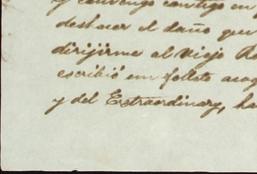 y convengo contigo en
deshacer el daño que
dirijirme al Viejo
escribió un folleto
y del Extraordinary, ha